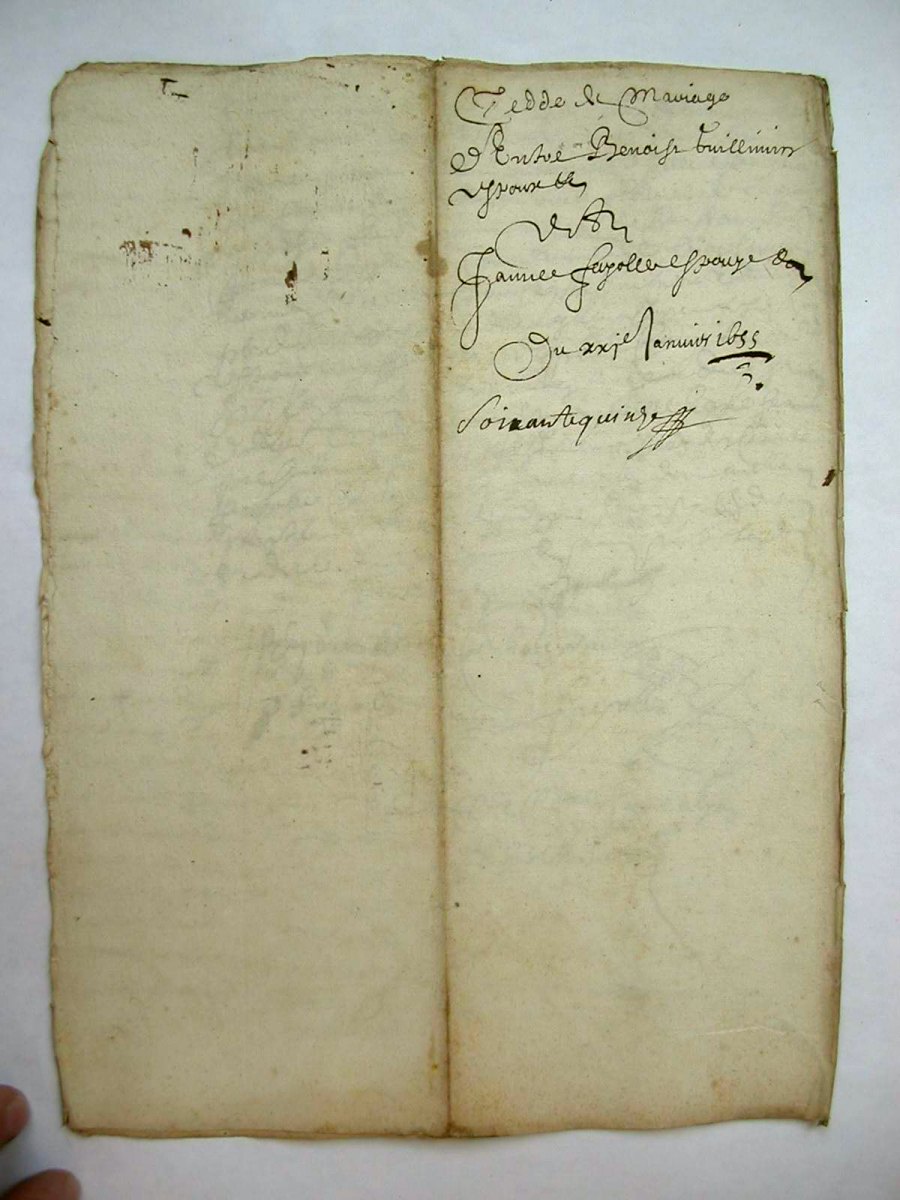 Cedde de Mariage
D'Entre Benoist Guillimin
espoux
Et
Janne Fayolle espouze
Du xxje Janvier 1655
Soixante quinze